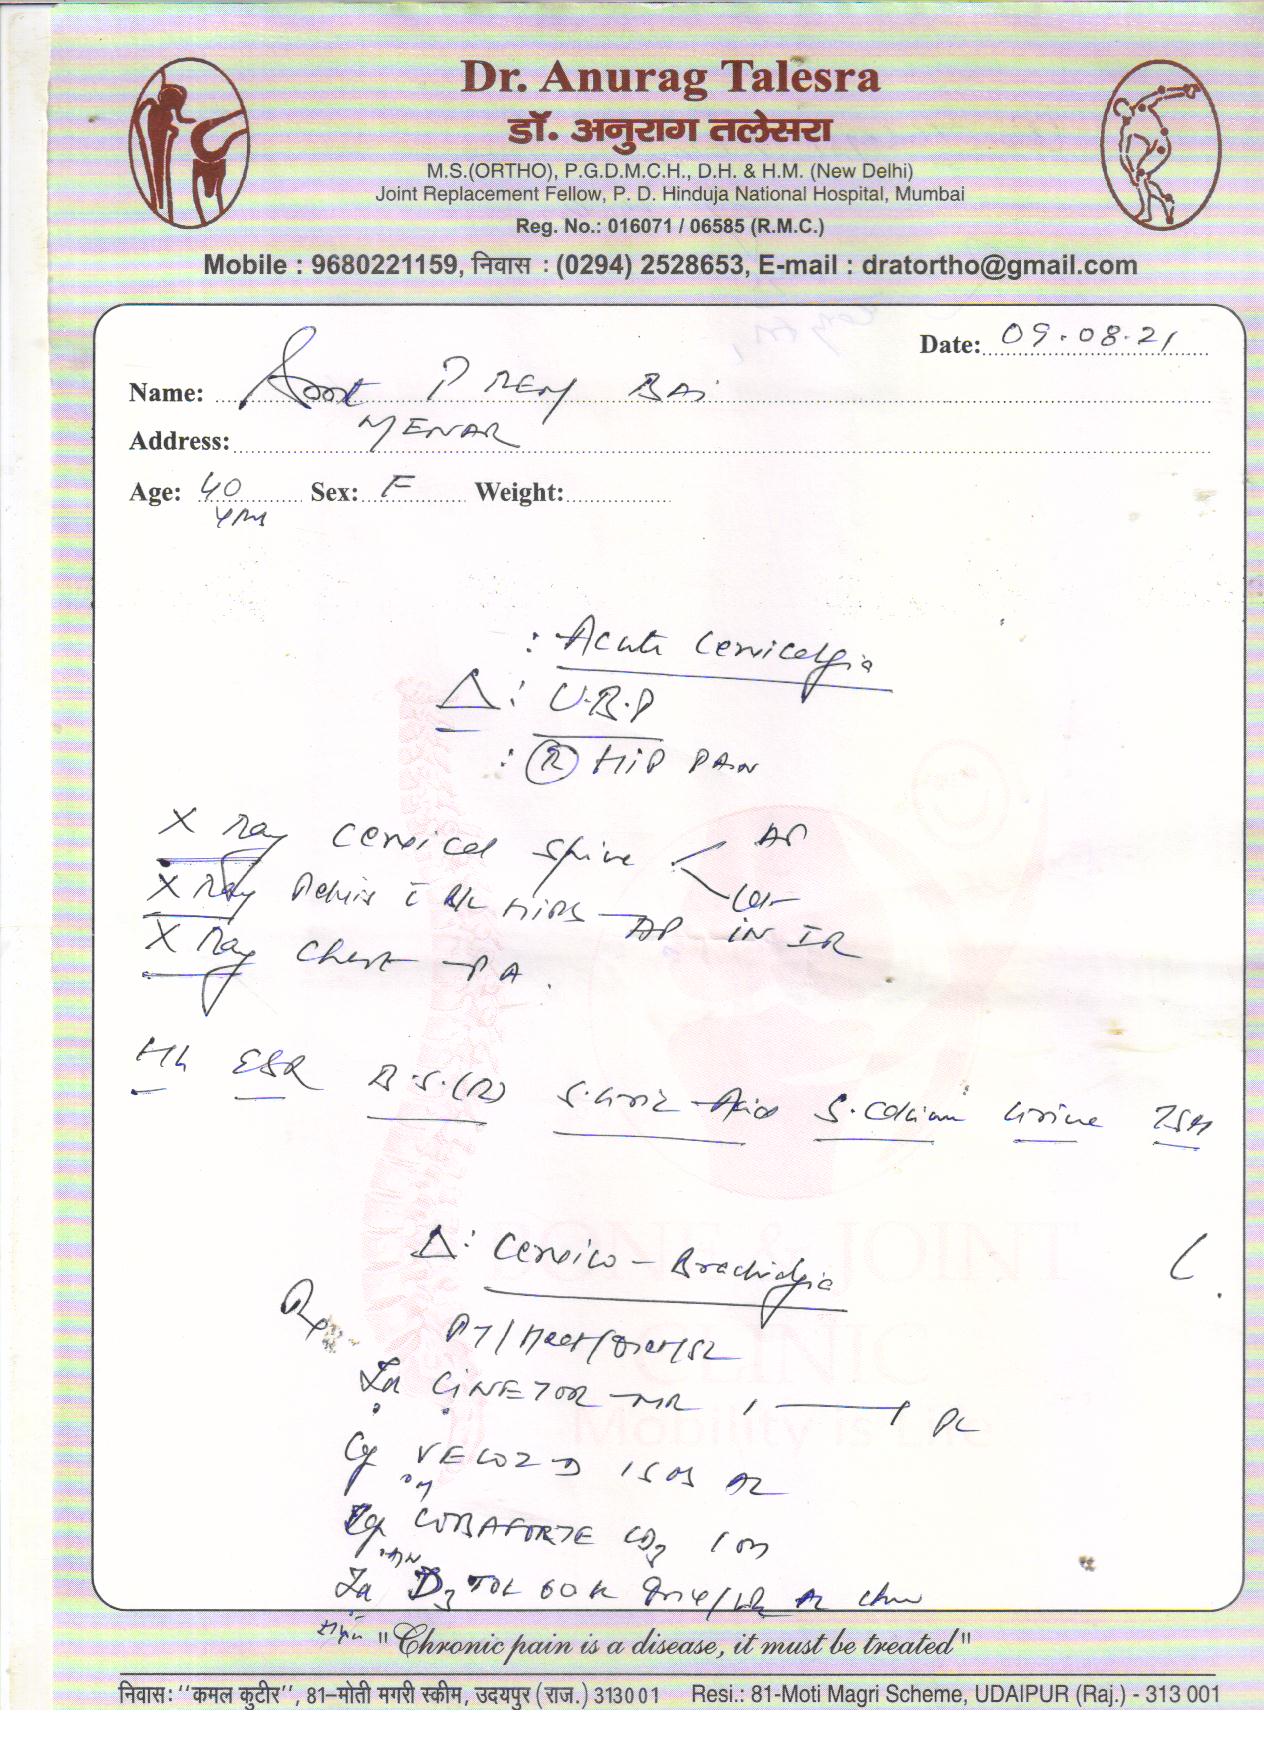 Dr. Anurag Talesra
डॉ. अनुराग तलेसरा
M.S.(ORTHO), P.G.D.M.C.H., D.H. & H.M. (New Delhi)
Joint Replacement Fellow, P. D. Hinduja National Hospital, Mumbai
Reg. No.: 016071 / 06585 (R.M.C.)
Mobile : 9680221159, निवास : (0294) 2528653, E-mail : dratortho@gmail.com
Date: 09.08.21
Name: PREM BAI
Address: MENAR
Age: 40 Sex: F Weight:
yrs
: Acute Cervicalgia
Δ: U.B.P
: (R) HIP PAIN
X Ray Cervical spine AP
Lat
X Ray Pelvis c B/L HIPS - AP IN IR
X Ray Chest - PA.
Hb ESR B.S.(R) S.Uric Acid S.Calcium Urine TSH
Δ: Cervico - Brachialgia
BONE & JOINT
Rx
CLINIC
CINETOR - MR 1 — 1 PC
Mobility is Life
VELOZ D 1 OD AC
COBAFORTE CD3 1 OD
D3 TOL 60K
"Chronic pain is a disease, it must be treated"
निवास: ''कमल कुटीर'', 81–मोती मगरी स्कीम, उदयपुर (राज.) 313001 Resi.: 81-Moti Magri Scheme, UDAIPUR (Raj.) - 313 001